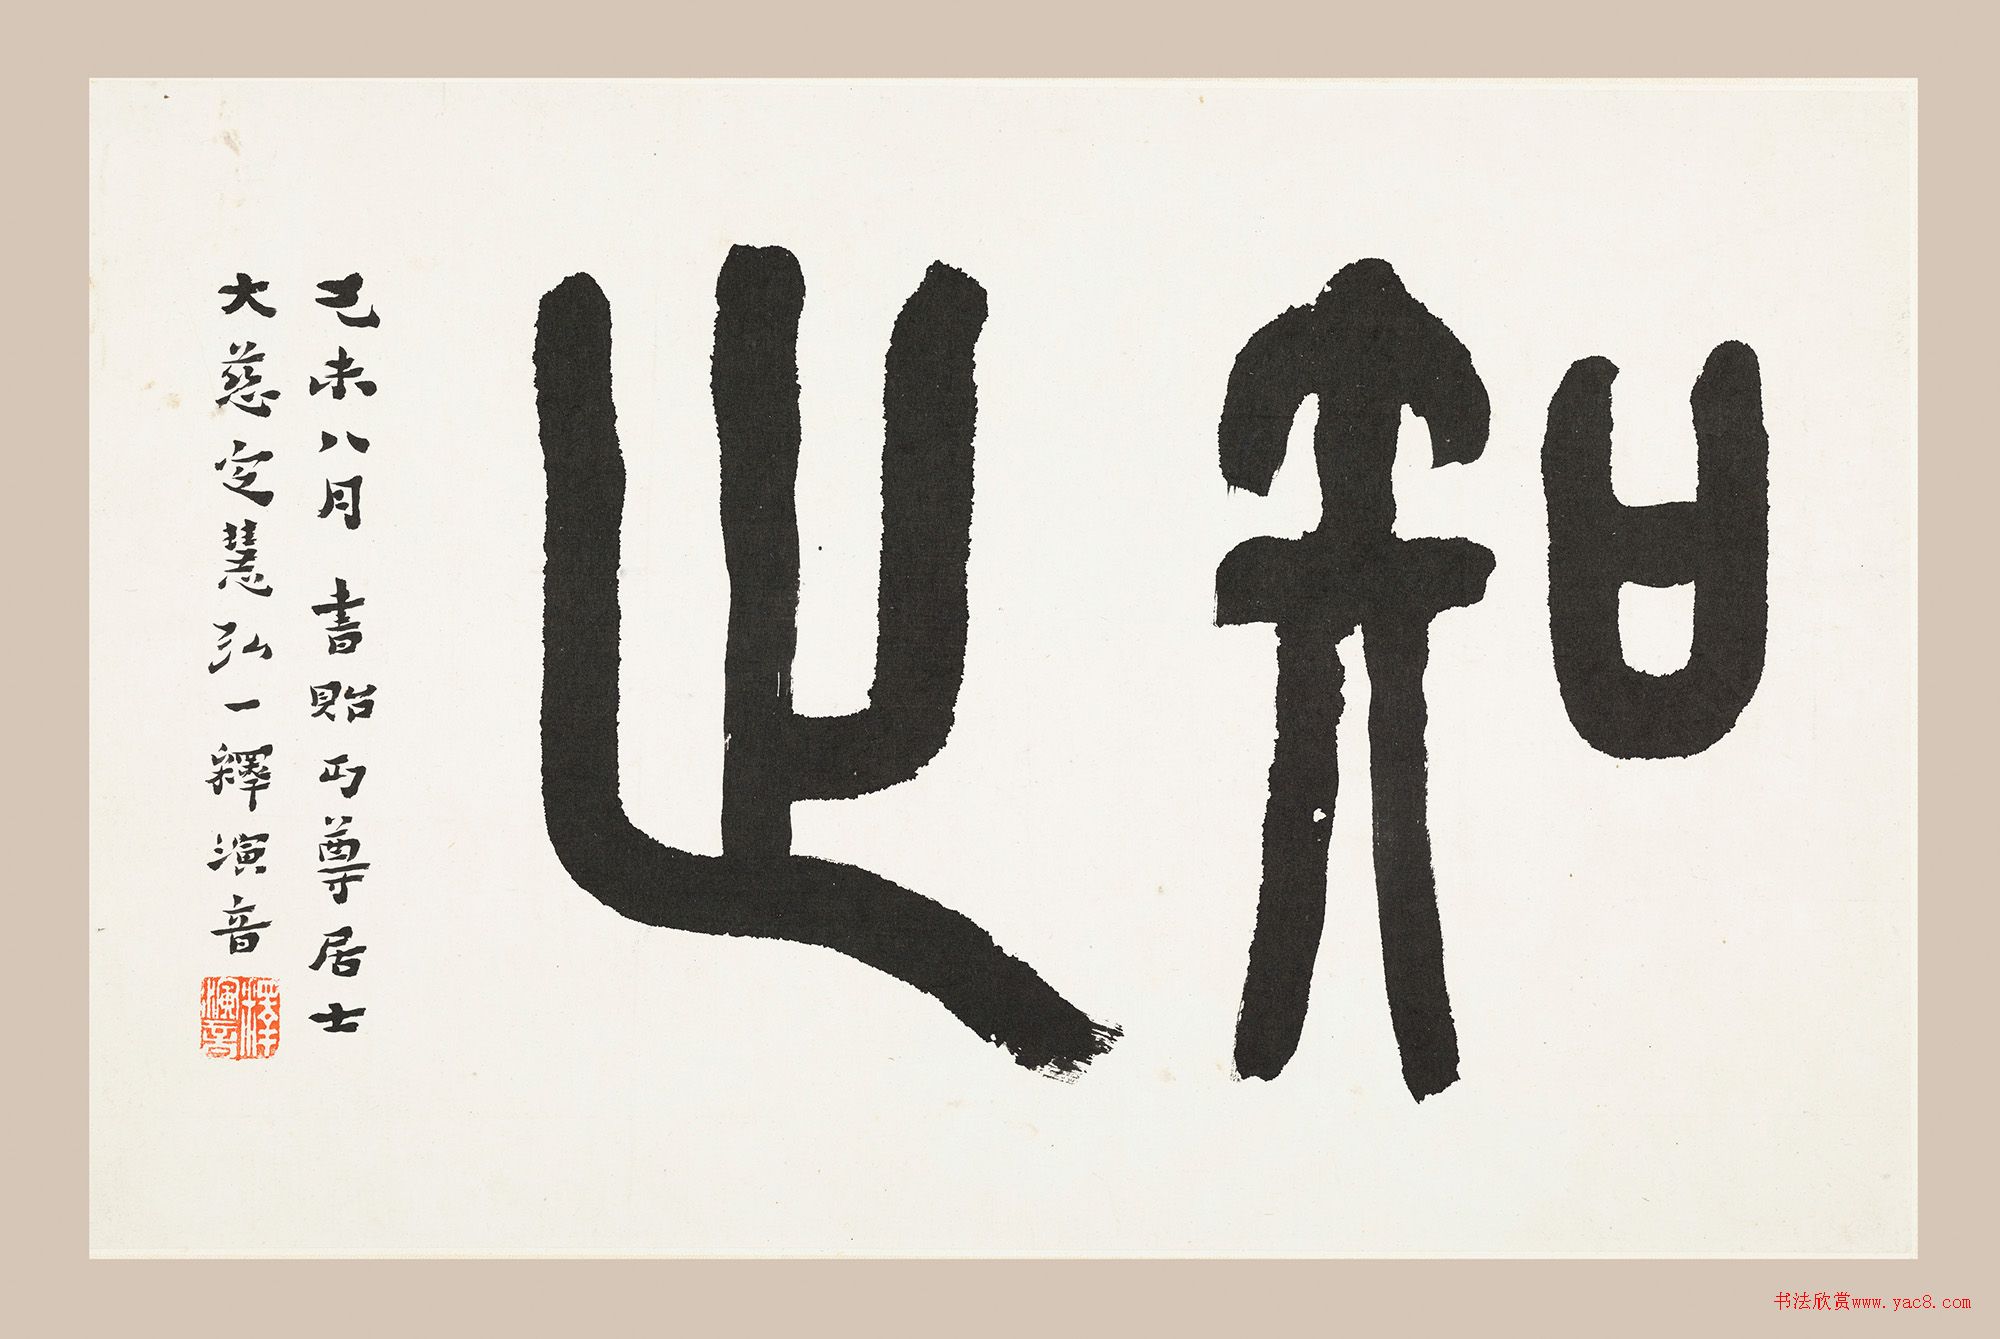 知止
己未八月 書貽丏尊居士
大慈定慧弘一釋演音
釋演音
书法欣赏www.yac8.com